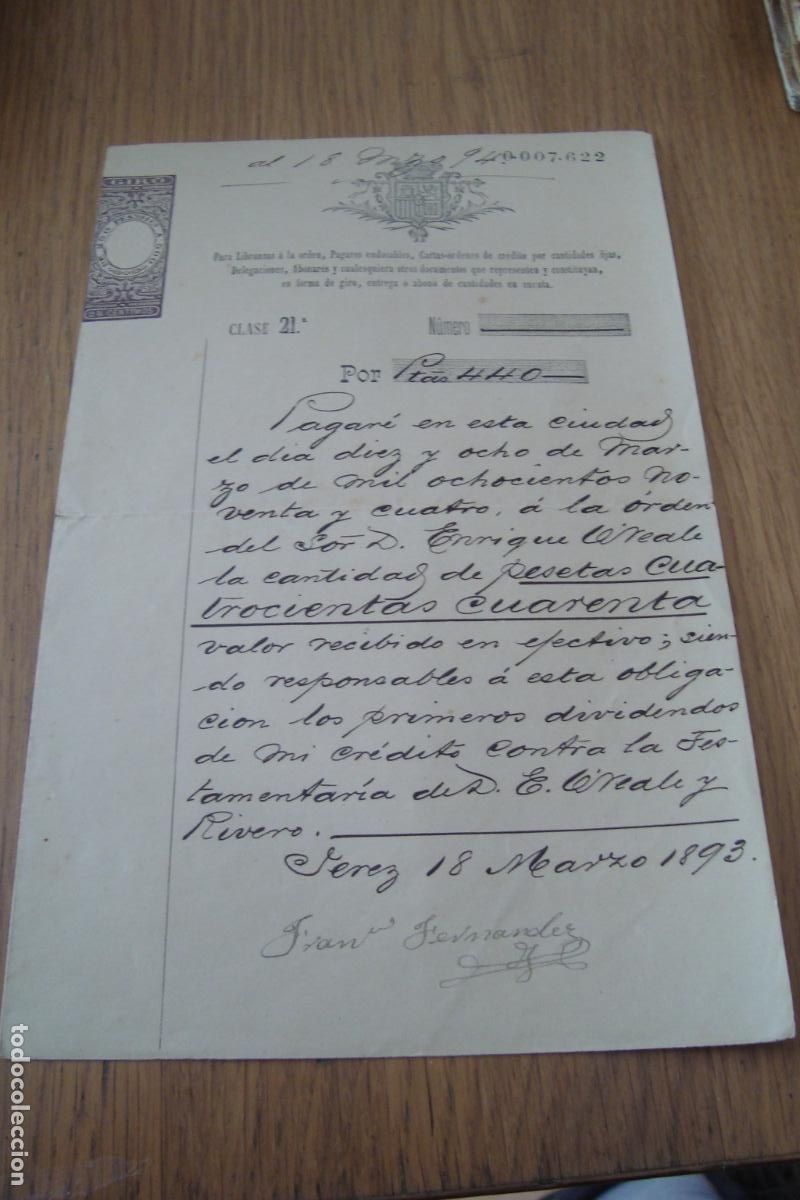 al 18 Mzo 94
0.007.622
GIRO
25 CENTIMOS
Para Libranzas á la orden, Pagarés endosables, Cartas-órdenes de crédito por cantidades fijas,
Delegaciones, Abonarés y cualesquiera otros documentos que representen y constituyan,
en forma de giro, entrega o abono de cantidades en cuenta.
CLASE 21.ª Número
Por Ptas 440
Pagaré en esta ciudad
el dia diez y ocho de Mar-
zo de mil ochocientos no-
venta y cuatro, á la órden
del Sor D. Enrique O'Neale
la cantidad de pesetas Cua-
trocientas cuarenta
valor recibido en efectivo; sien-
do responsables á esta obliga-
cion los primeros dividendos
de mi crédito contra la Tes-
tamentaría de D. E. O'Neale y
Rivero.
Jerez 18 Marzo 1893.
Franco Fernandez
todocoleccion